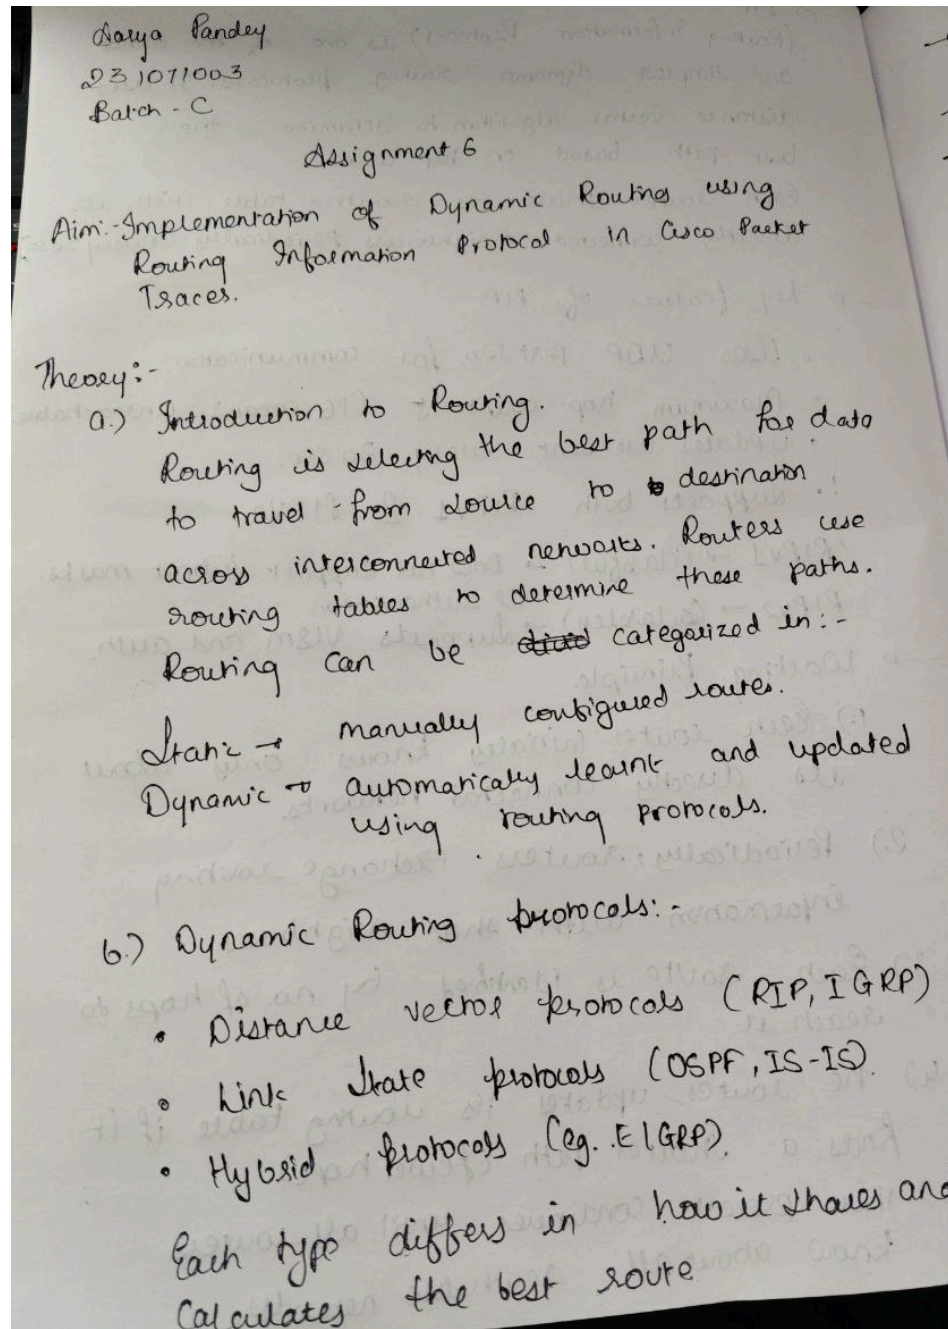 Aarya Pandey
231071003
Batch - C
Assignment 6
Aim:- Implementation of Dynamic Routing using
Routing Information Protocol in Cisco Packet
Tracer.
Theory:-
a.) Introduction to Routing.
Routing is selecting the best path for data
to travel from source to destination
across interconnected networks. Routers use
routing tables to determine these paths.
Routing can be categorized in:-
Static → manually configured routes.
Dynamic → automatically learnt and updated
using routing protocols.
b.) Dynamic Routing protocols:-
• Distance vector protocols (RIP, IGRP)
• Link State protocols (OSPF, IS-IS).
• Hybrid protocols (eg. EIGRP).
Each type differs in how it shares and
calculates the best route